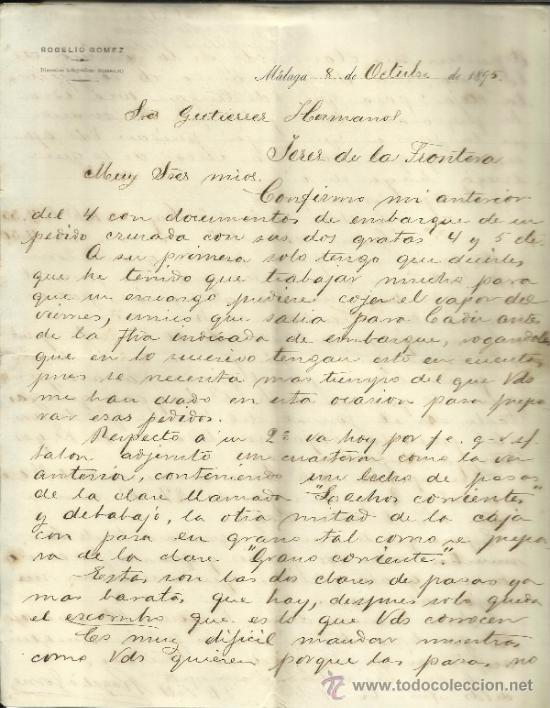 ROGELIO GOMEZ
Málaga 8 de Octubre de 1895
Sres Gutierrez Hermanos
Jerez de la Frontera
Muy Sres mios.
Confirmo mi anterior
del 4 con documentos de embarque de su
pedido cruzada con sus dos gratas 4 y 5 de.
A su primera solo tengo que decirles
que he tenido que trabajar mucho para
que su encargo pudiere cojer el vapor del
viernes, unico que salia para Cadiz antes
de la fha indicada de embarque, rogandoles
que en lo sucesivo tengan esto en cuenta
pues se necesita mas tiempo del que Vds
me han dado en esta ocasion para prepa
rar esas pedidos.
Respecto a su 2ª va hoy por f c. g. v. s/
talon adjunto un cuarteron como la vez
anterior, conteniendo un lecho de pasas
de la clase llamada "Lechos corrientes"
y debabajo, la otra mitad de la caja
con pasa en grano tal como se prepa
ra de la clase "Grano corriente".
Estas son las dos clases de pasas ya
mas baratas que hay, despues solo queda
el escombro que es lo que Vds conocen
Es muy dificil mandar muestras
como Vds quieren porque las pasas no
www.todocoleccion.net